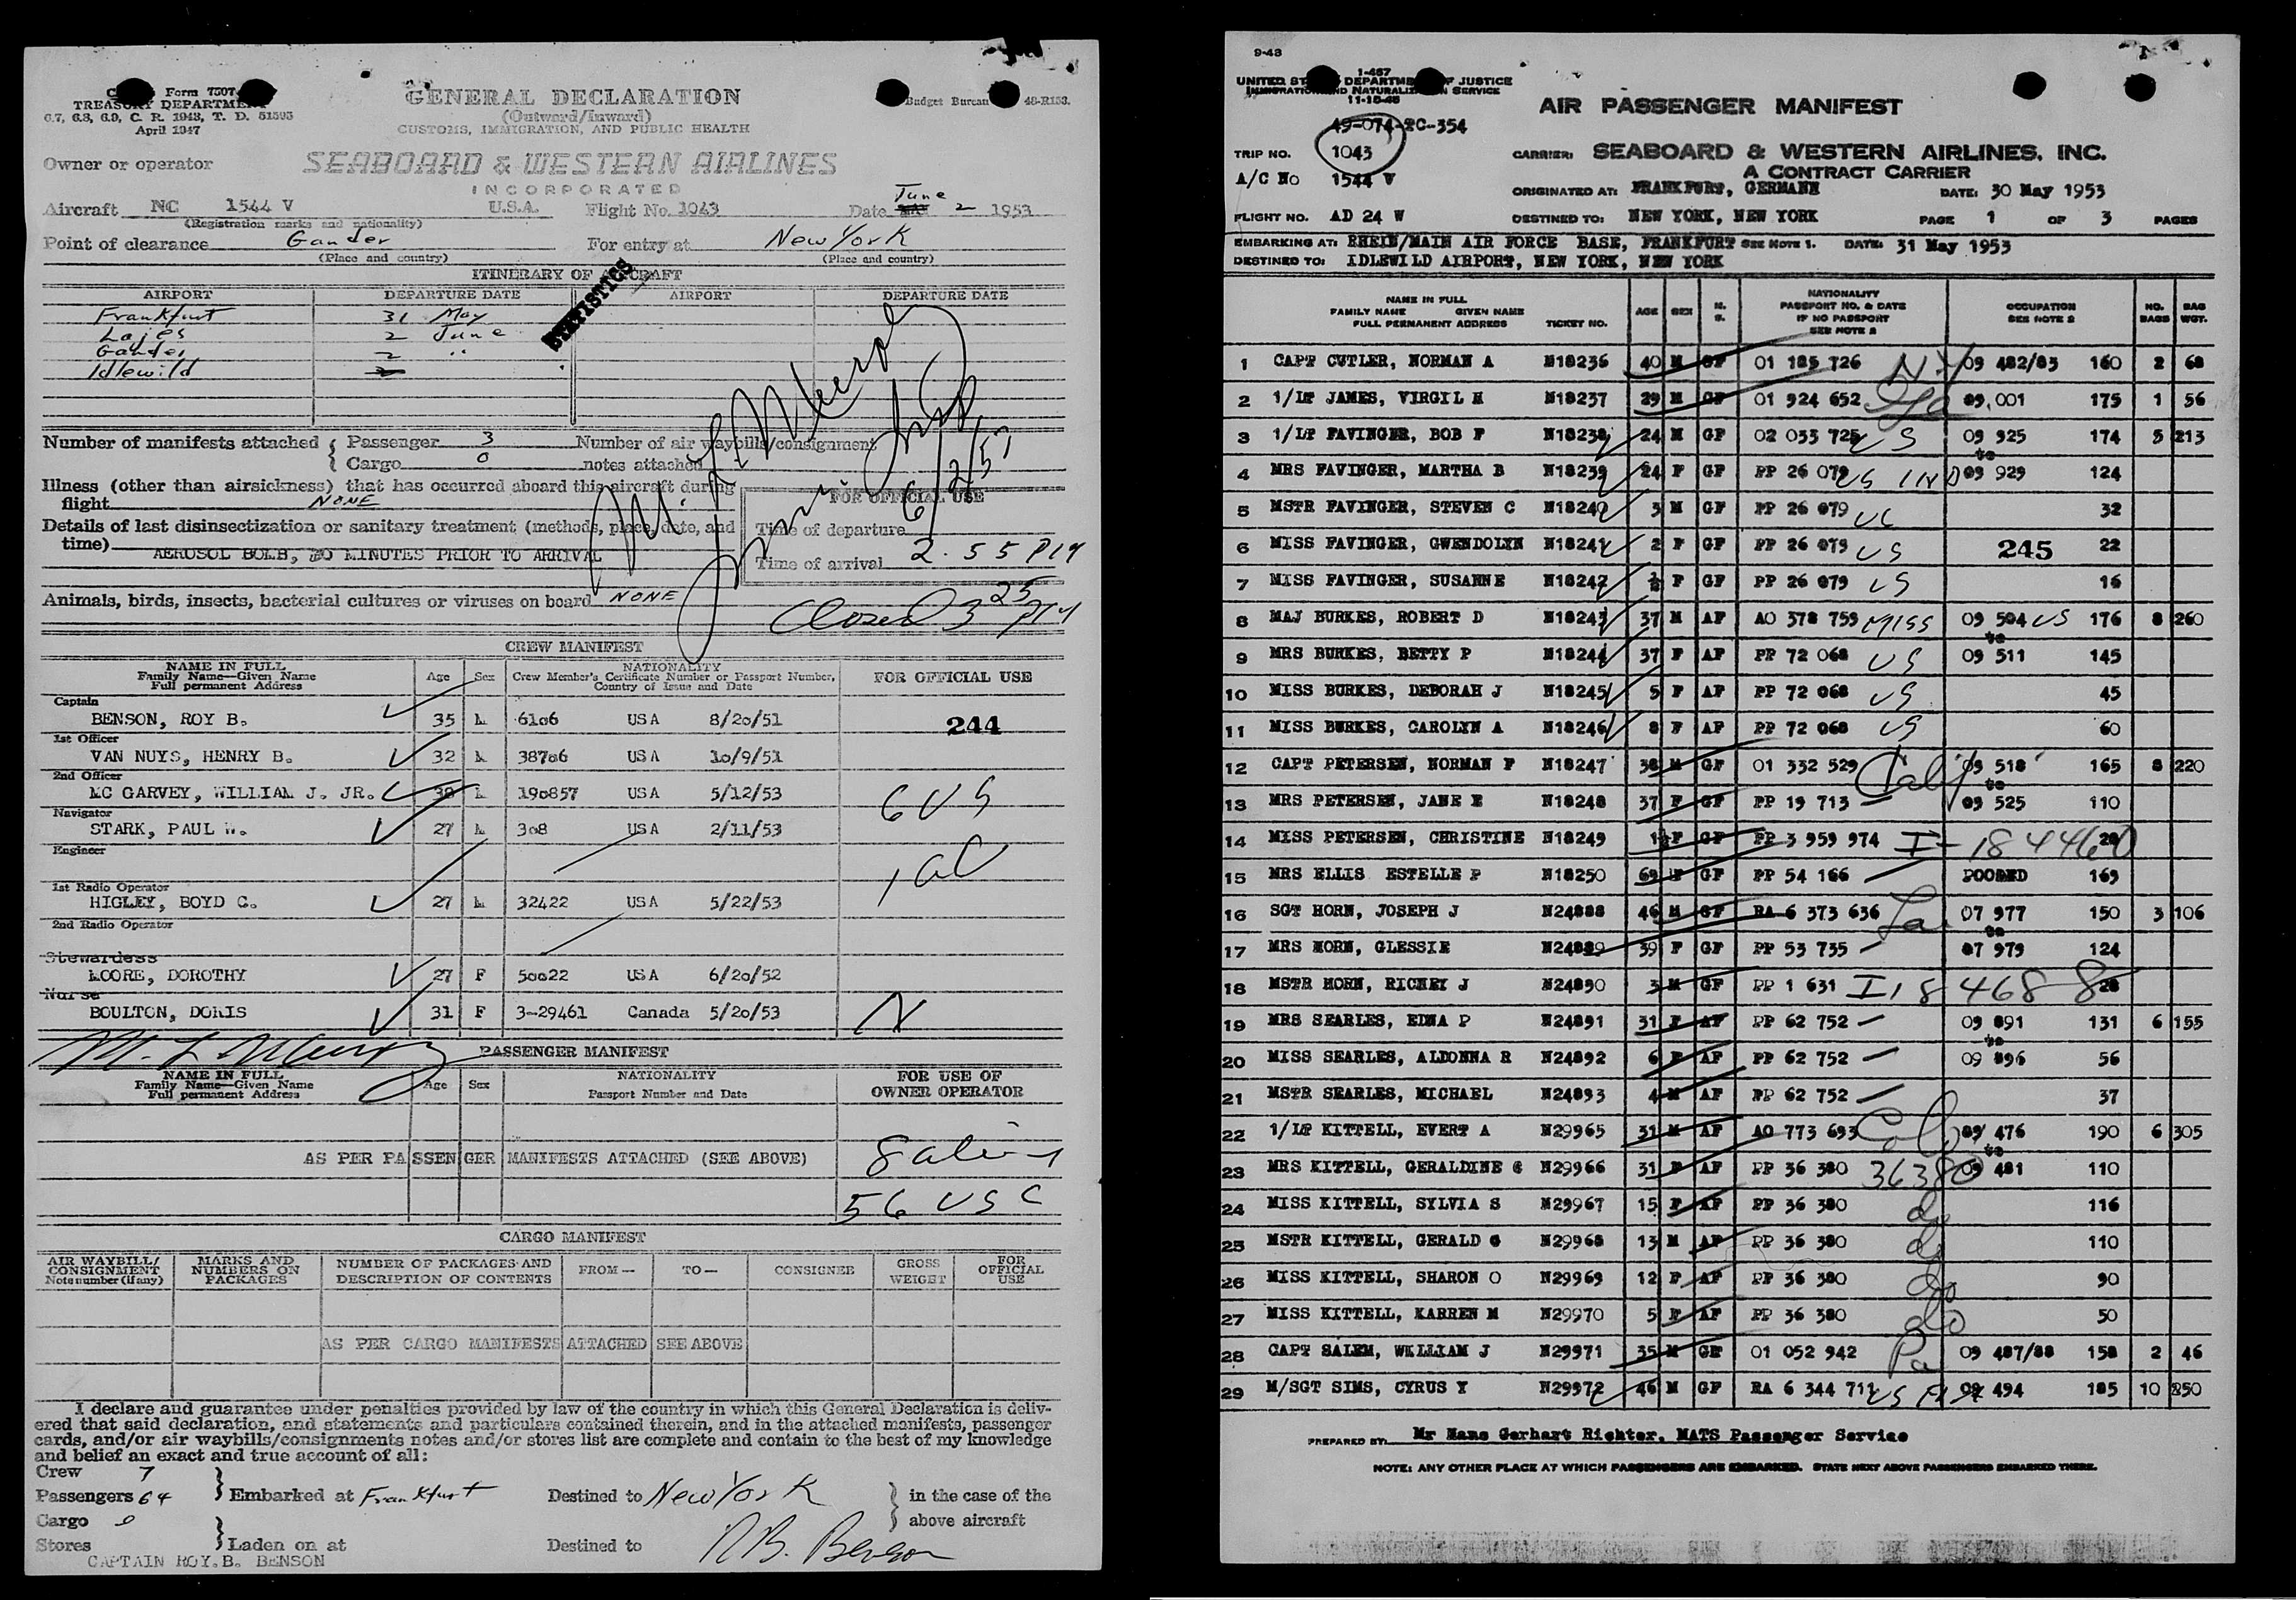 Form 7507
TREASURY DEPARTMENT
6.7, 6.8, 6.9, C. R. 1943, T. D. 51593
April 1947
GENERAL DECLARATION
(Outward/Inward)
CUSTOMS, IMMIGRATION, AND PUBLIC HEALTH
Budget Bureau 48-R153.
Owner or operator SEABOARD & WESTERN AIRLINES
INCORPORATED
Aircraft NC 1544 V U.S.A. Flight No. 1043 Date June 2 1953
(Registration marks and nationality)
Point of clearance Gander For entry at New York
(Place and country) (Place and country)
ITINERARY OF AIRCRAFT
STATISTICS
AIRPORT DEPARTURE DATE AIRPORT DEPARTURE DATE
Frankfurt 31 May
Lajes 2 June
Gander 2 "
Idlewild
Number of manifests attached { Passenger 3 Number of air waybills/consignment
Cargo 0 notes attached
Illness (other than airsickness) that has occurred aboard this aircraft during
flight NONE
FOR OFFICIAL USE
6/2/53
Details of last disinsectization or sanitary treatment (methods, place, date, and
time) AEROSOL BOMB, 30 MINUTES PRIOR TO ARRIVAL
Time of departure
Time of arrival 2.55 PM
Animals, birds, insects, bacterial cultures or viruses on board NONE
Closed 3 25 PM
CREW MANIFEST
NAME IN FULL
Family Name—Given Name
Full permanent Address
Age Sex
NATIONALITY
Crew Member's Certificate Number or Passport Number,
Country of Issue and Date
FOR OFFICIAL USE
Captain
BENSON, ROY B. 35 M 6106 USA 8/20/51 244
1st Officer
VAN NUYS, HENRY B. 32 M 38706 USA 10/9/51
2nd Officer
MC GARVEY, WILLIAM J. JR. 30 M 190857 USA 5/12/53 6 US
Navigator
STARK, PAUL W. 27 M 308 USA 2/11/53
Engineer
1st Radio Operator
HIGLEY, BOYD C. 27 M 32422 USA 5/22/53
2nd Radio Operator
Stewardess
MOORE, DOROTHY 27 F 50022 USA 6/20/52
Nurse
BOULTON, DORIS 31 F 3-29461 Canada 5/20/53 N
PASSENGER MANIFEST
NAME IN FULL
Family Name—Given Name
Full permanent Address
Age Sex
NATIONALITY
Passport Number and Date
FOR USE OF
OWNER OPERATOR
AS PER PASSENGER MANIFESTS ATTACHED (SEE ABOVE) 8 alien
56 USC
CARGO MANIFEST
AIR WAYBILL/CONSIGNMENT Note number (if any)
MARKS AND NUMBERS ON PACKAGES
NUMBER OF PACKAGES AND DESCRIPTION OF CONTENTS
FROM— TO— CONSIGNEE GROSS WEIGHT FOR OFFICIAL USE
AS PER CARGO MANIFESTS ATTACHED SEE ABOVE
I declare and guarantee under penalties provided by law of the country in which this General Declaration is deliv-
ered that said declaration, and statements and particulars contained therein, and in the attached manifests, passenger
cards, and/or air waybills/consignments notes and/or stores list are complete and contain to the best of my knowledge
and belief an exact and true account of all:
Crew 7
Passengers 64 } Embarked at Frankfurt Destined to New York } in the case of the
above aircraft
Cargo 0
Stores } Laden on at Destined to R.B. Benson
CAPTAIN ROY.B. BENSON
9-48
1-467
UNITED STATES DEPARTMENT OF JUSTICE
IMMIGRATION AND NATURALIZATION SERVICE
11-15-48
AIR PASSENGER MANIFEST
49-074-PC-354
TRIP NO. 1043 CARRIER: SEABOARD & WESTERN AIRLINES, INC.
A CONTRACT CARRIER
A/C No 1544 V ORIGINATED AT: FRANKFURT, GERMANY DATE: 30 May 1953
FLIGHT NO. AD 24 W DESTINED TO: NEW YORK, NEW YORK PAGE 1 OF 3 PAGES
EMBARKING AT: RHEIN/MAIN AIR FORCE BASE, FRANKFURT SEE NOTE 1. DATE: 31 May 1953
DESTINED TO: IDLEWILD AIRPORT, NEW YORK, NEW YORK
NAME IN FULL
FAMILY NAME GIVEN NAME
FULL PERMANENT ADDRESS TICKET NO.
AGE SEX M. S.
NATIONALITY
PASSPORT NO. & DATE
IF NO PASSPORT
SEE NOTE 2
OCCUPATION
SEE NOTE 2
NO. BAGS BAG WGT.
1 CAPT CUTLER, NORMAN A N18236 40 M GF 01 185 726 NY 09 482/83 160 2 68
2 1/LT JAMES, VIRGIL H N18237 29 M GF 01 924 652 Ga 09.001 175 1 56
3 1/LT FAVINGER, BOB F N18238 24 M GF 02 033 725 US 09 925 174 5 213
to
4 MRS FAVINGER, MARTHA B N18239 24 F GF PP 26 079 US IND 09 929 124
5 MSTR FAVINGER, STEVEN C N18240 3 M GF PP 26 079 US 32
6 MISS FAVINGER, GWENDOLYN N18241 2 F GF PP 26 079 US 245 22
7 MISS FAVINGER, SUSANNE N18242 F GF PP 26 079 US 16
8 MAJ BURKES, ROBERT D N18243 37 M AF AO 378 759 MISS 09 504 US 176 8 260
to
9 MRS BURKES, BETTY P N18244 37 F AF PP 72 068 US 09 511 145
10 MISS BURKES, DEBORAH J N18245 5 F AF PP 72 068 US 45
11 MISS BURKES, CAROLYN A N18246 8 F AF PP 72 068 US 60
12 CAPT PETERSEN, NORMAN F N18247 38 M GF 01 332 529 Calif 09 518 165 8 220
to
13 MRS PETERSEN, JANE E N18248 37 F GF PP 19 713 09 525 110
14 MISS PETERSEN, CHRISTINE N18249 F GF PP 3 959 974 I-184460
15 MRS ELLIS ESTELLE P N18250 69 F GF PP 54 166 POODED 169
16 SGT HORN, JOSEPH J N24888 46 M GF RA 6 373 636 La 07 977 150 3 106
to
17 MRS HORN, GLESSIE N24889 39 F GF PP 53 735 07 979 124
18 MSTR HORN, RICKEY J N24890 3 M GF PP 1 631 I 184688
19 MRS SEARLES, EDNA P N24891 31 F AF PP 62 752 09 891 131 6 155
to
20 MISS SEARLES, ALDONNA R N24892 6 F AF PP 62 752 09 896 56
21 MSTR SEARLES, MICHAEL N24893 4 M AF PP 62 752 37
22 1/LT KITTELL, EVERT A N29965 31 M AF AO 773 693 Colo 09 476 190 6 305
to
23 MRS KITTELL, GERALDINE G N29966 31 F AF PP 36 380 36380 09 481 110
24 MISS KITTELL, SYLVIA S N29967 15 F AF PP 36 380 do 116
25 MSTR KITTELL, GERALD G N29968 13 M AF PP 36 380 do 110
26 MISS KITTELL, SHARON O N29969 12 F AF PP 36 380 do 90
27 MISS KITTELL, KARREN M N29970 5 F AF PP 36 380 do 50
28 CAPT SALEM, WILLIAM J N29971 35 M GF 01 052 942 Pa 09 487/88 158 2 46
29 M/SGT SIMS, CYRUS Y N29972 46 M GF RA 6 344 711 US 09 494 185 10 250
PREPARED BY: Mr Hans Gerhart Richter, MATS Passenger Service
NOTE: ANY OTHER PLACE AT WHICH PASSENGERS ARE EMBARKED. STATE NEXT ABOVE PASSENGERS EMBARKED THERE.